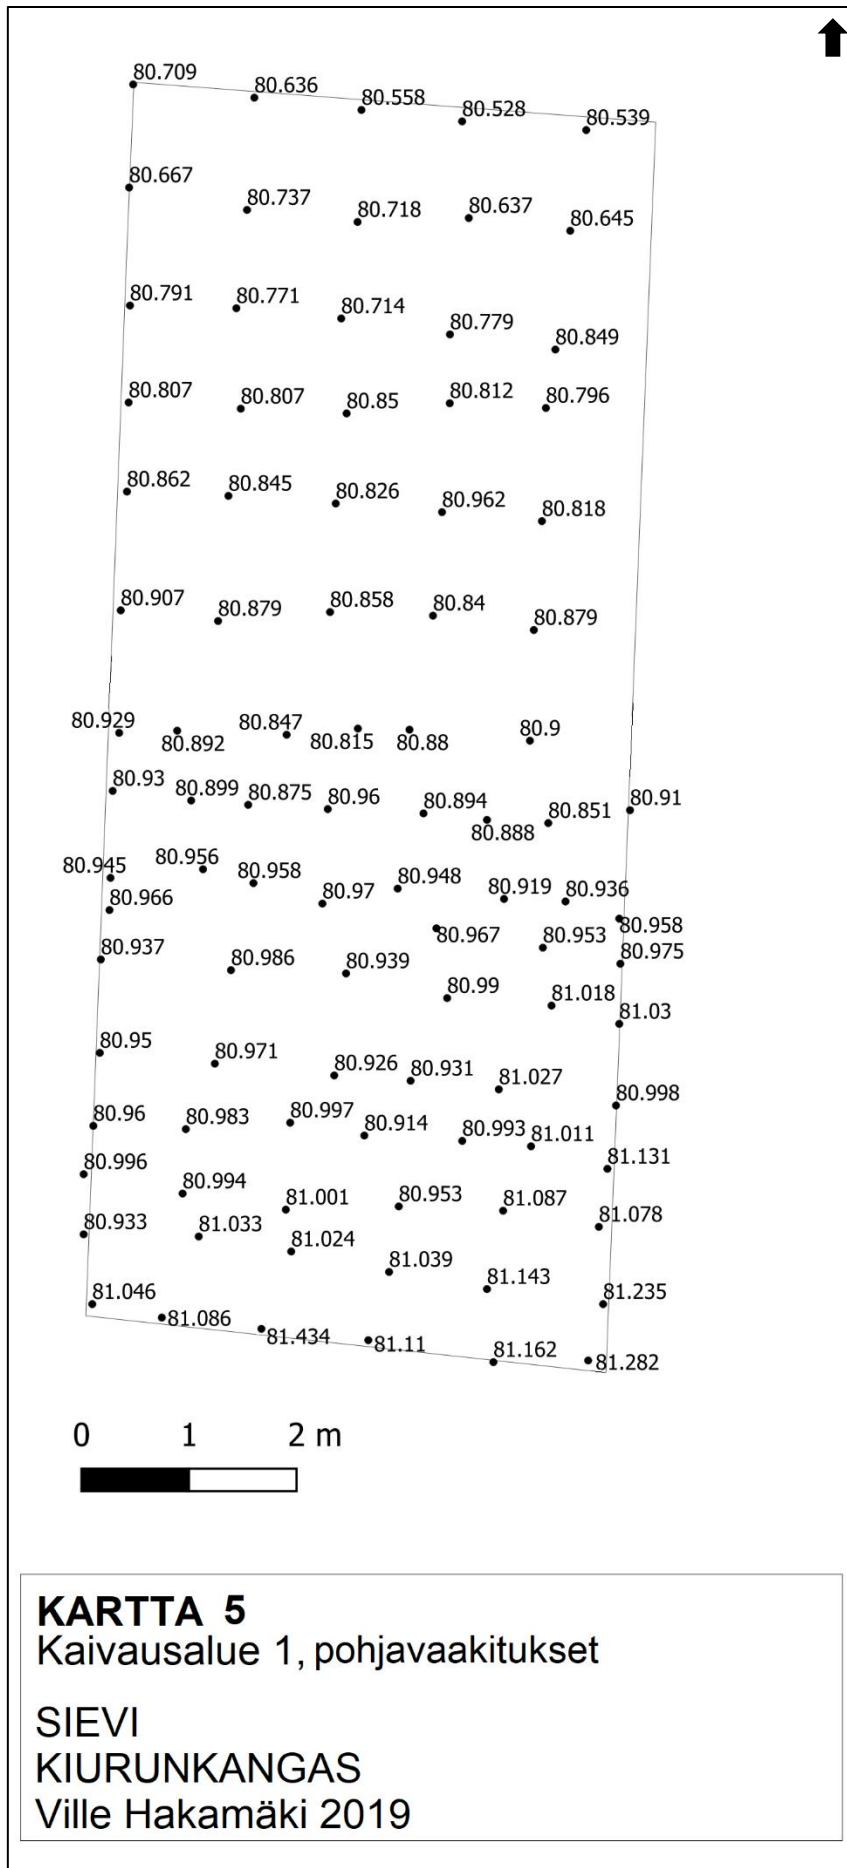 80.709
80.636
80.558
80.528
80.539
80.667
80.737
80.718
80.637
80.645
80.791
80.771
80.714
80.779
80.849
80.807
80.807
80.85
80.812
80.796
80.862
80.845
80.826
80.962
80.818
80.907
80.879
80.858
80.84
80.879
80.929
80.892
80.847
80.815
80.88
80.9
80.93
80.899
80.875
80.96
80.894
80.888
80.851
80.91
80.945
80.956
80.958
80.97
80.948
80.919
80.936
80.958
80.966
80.967
80.953
80.975
80.937
80.986
80.939
80.99
81.018
81.03
80.95
80.971
80.926
80.931
81.027
80.998
80.96
80.983
80.997
80.914
80.993
81.011
81.131
80.996
80.994
81.001
80.953
81.087
81.078
80.933
81.033
81.024
81.039
81.143
81.235
81.046
81.086
81.434
81.11
81.162
81.282
0 1 2 m
KARTTA 5
Kaivausalue 1, pohjavaakitukset
SIEVI
KIURUNKANGAS
Ville Hakamäki 2019